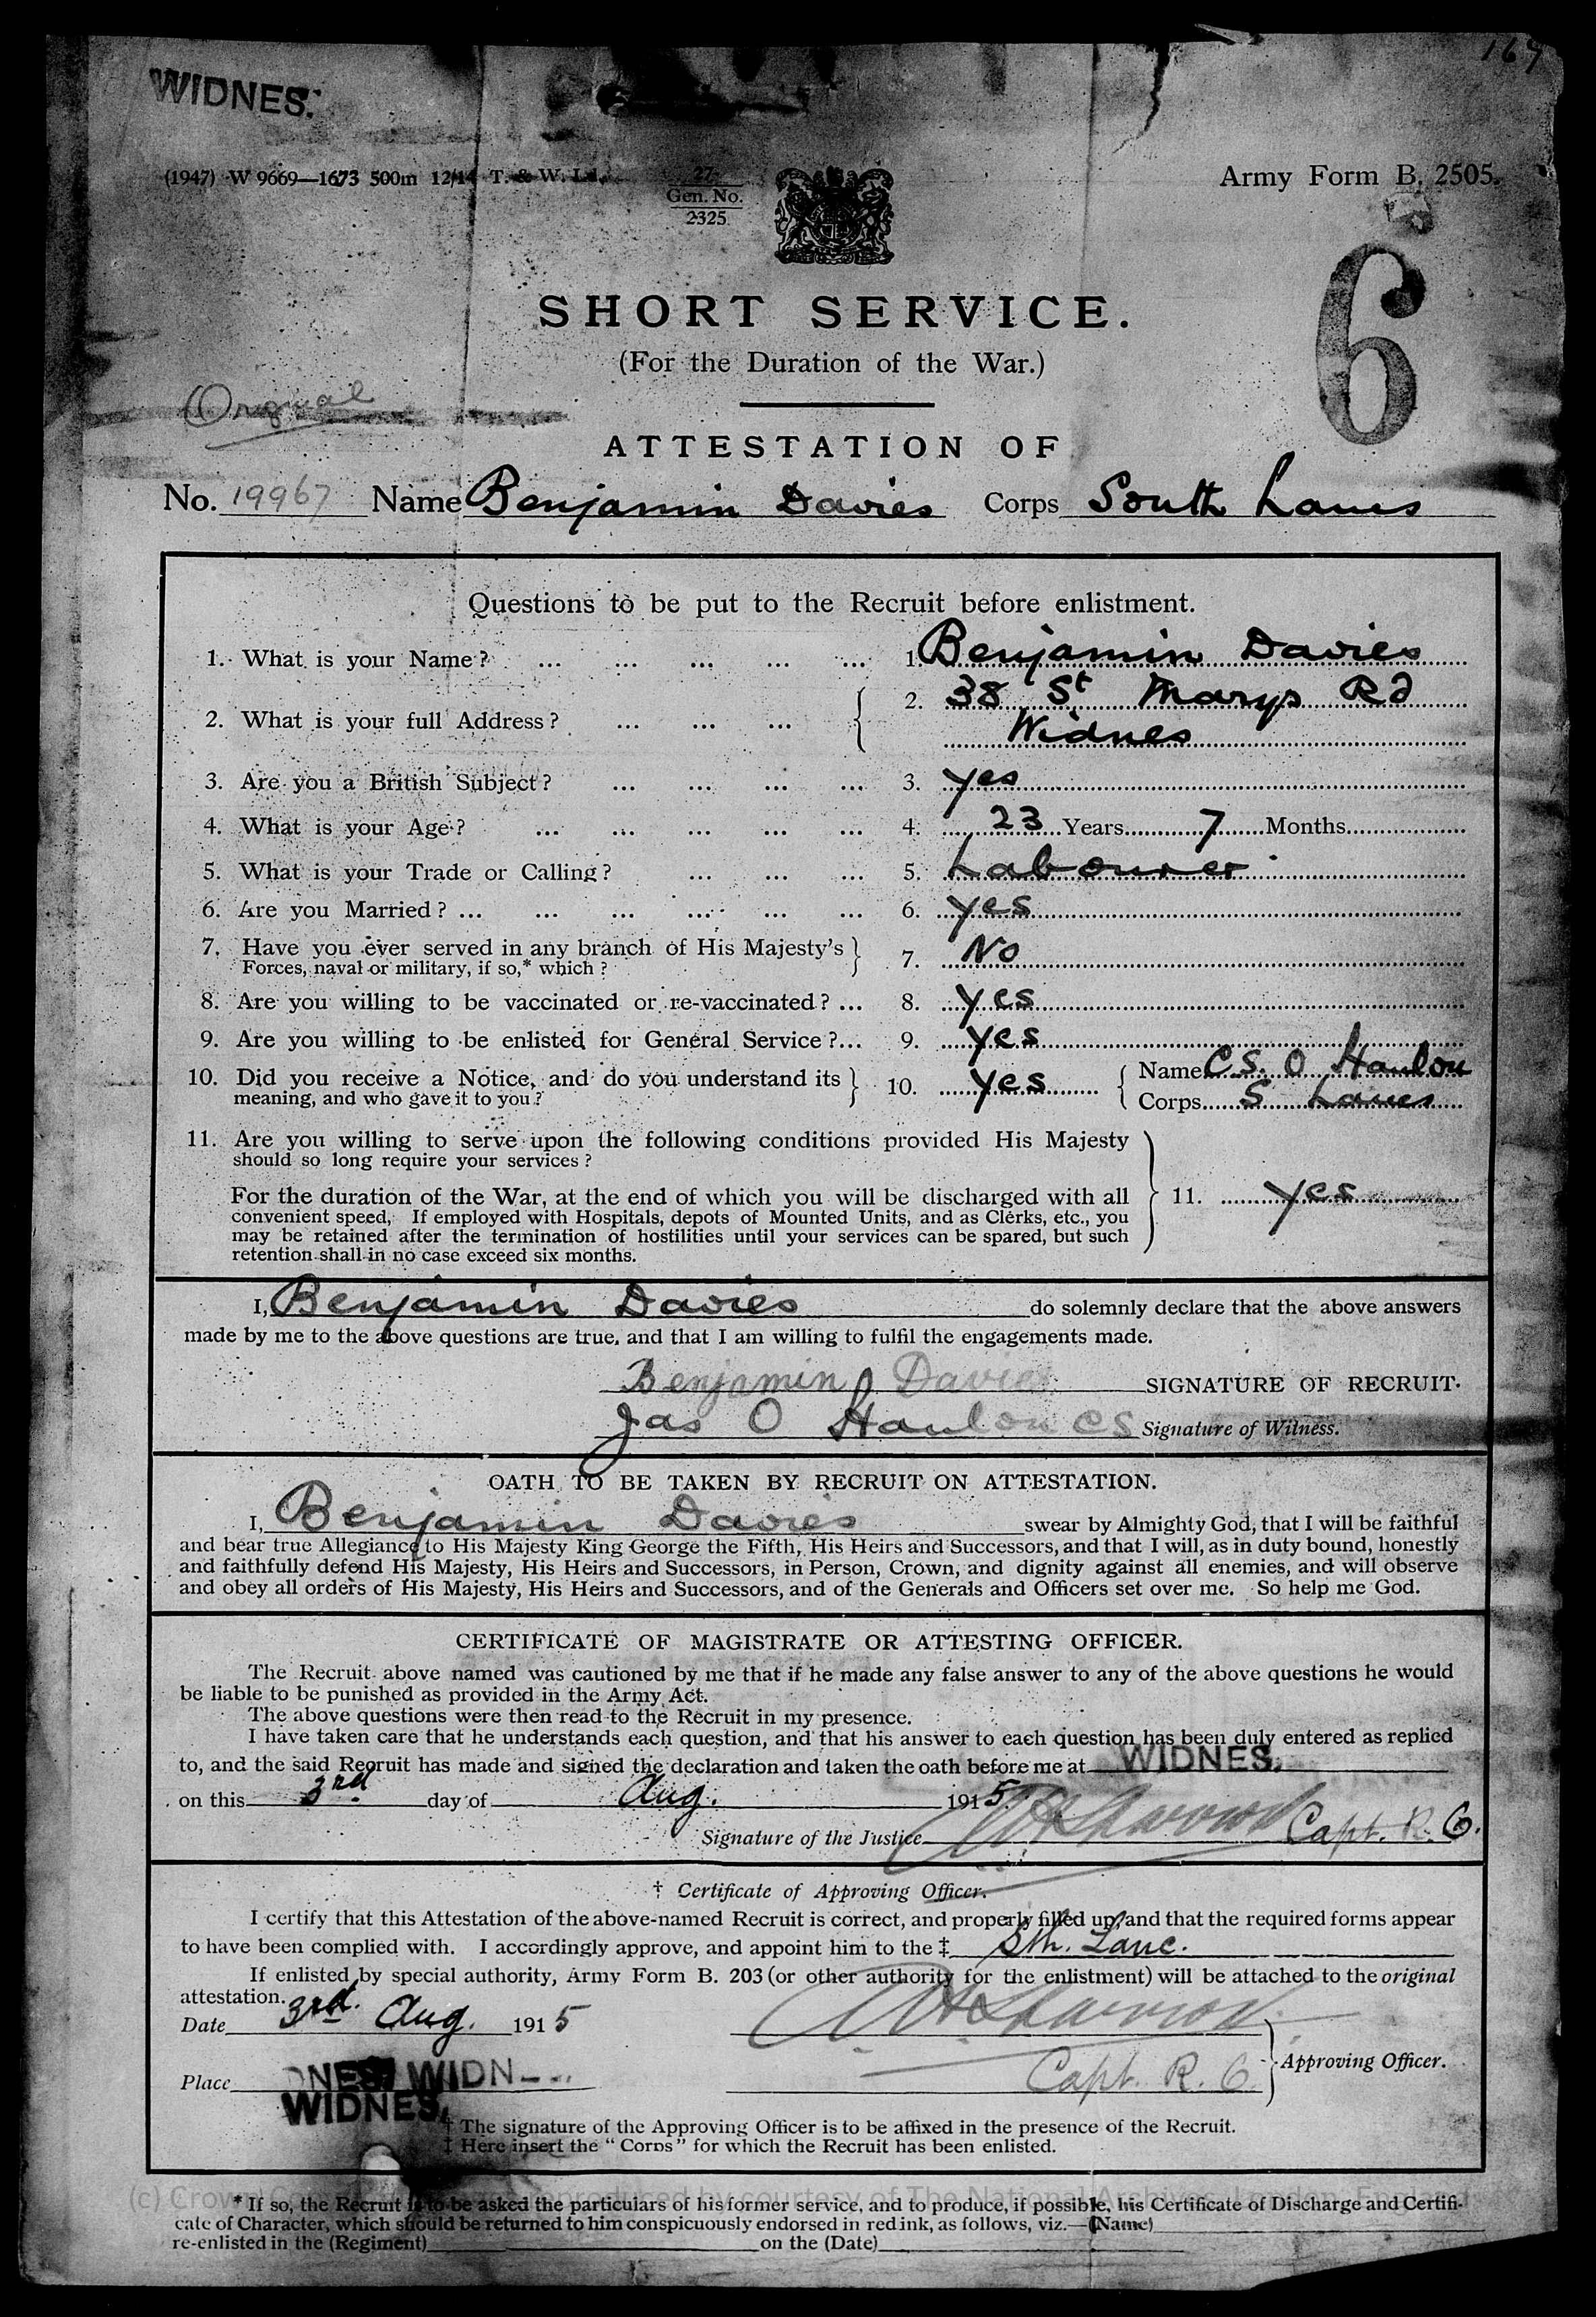 169
WIDNES.
(1947) W 9669—1673 500m 12/14 T. & W. Ld. 27 Gen. No. 2325 Army Form B. 2505.
6
SHORT SERVICE.
(For the Duration of the War.)
Original
ATTESTATION OF
No. 19967 Name Benjamin Davies Corps South Lancs
Questions to be put to the Recruit before enlistment.
1. What is your Name? ... ... ... ... ... 1. Benjamin Davies
2. What is your full Address? ... ... ... 2. 38 St Marys Rd
Widnes
3. Are you a British Subject? ... ... ... ... 3. Yes
4. What is your Age? ... ... ... ... ... 4. 23 Years 7 Months
5. What is your Trade or Calling? ... ... ... 5. Labourer
6. Are you Married? ... ... ... ... ... ... 6. Yes
7. Have you ever served in any branch of His Majesty's
Forces, naval or military, if so,* which? } 7. No
8. Are you willing to be vaccinated or re-vaccinated? ... 8. Yes
9. Are you willing to be enlisted for General Service?... 9. Yes
10. Did you receive a Notice, and do you understand its
meaning, and who gave it to you? } 10. Yes { Name C.S. O Hanlon
Corps S Lancs
11. Are you willing to serve upon the following conditions provided His Majesty
should so long require your services?
For the duration of the War, at the end of which you will be discharged with all
convenient speed. If employed with Hospitals, depots of Mounted Units, and as Clerks, etc., you
may be retained after the termination of hostilities until your services can be spared, but such
retention shall in no case exceed six months. } 11. Yes
I, Benjamin Davies do solemnly declare that the above answers
made by me to the above questions are true, and that I am willing to fulfil the engagements made.
Benjamin Davies SIGNATURE OF RECRUIT.
Jas O Hanlon CS Signature of Witness.
OATH TO BE TAKEN BY RECRUIT ON ATTESTATION.
I, Benjamin Davies swear by Almighty God, that I will be faithful
and bear true Allegiance to His Majesty King George the Fifth, His Heirs and Successors, and that I will, as in duty bound, honestly
and faithfully defend His Majesty, His Heirs and Successors, in Person, Crown, and dignity against all enemies, and will observe
and obey all orders of His Majesty, His Heirs and Successors, and of the Generals and Officers set over me. So help me God.
CERTIFICATE OF MAGISTRATE OR ATTESTING OFFICER.
The Recruit above named was cautioned by me that if he made any false answer to any of the above questions he would
be liable to be punished as provided in the Army Act.
The above questions were then read to the Recruit in my presence.
I have taken care that he understands each question, and that his answer to each question has been duly entered as replied
to, and the said Recruit has made and signed the declaration and taken the oath before me at WIDNES.
on this 3rd day of Aug. 1915
Signature of the Justice Capt. R. O.
† Certificate of Approving Officer.
I certify that this Attestation of the above-named Recruit is correct, and properly filled up, and that the required forms appear
to have been complied with. I accordingly approve, and appoint him to the ‡ Sth. Lanc.
If enlisted by special authority, Army Form B. 203 (or other authority for the enlistment) will be attached to the original
attestation.
Date 3rd. Aug. 1915
Capt. R. O. } Approving Officer.
Place DNES WIDN
WIDNES.
† The signature of the Approving Officer is to be affixed in the presence of the Recruit.
‡ Here insert the "Corps" for which the Recruit has been enlisted.
* If so, the Recruit is to be asked the particulars of his former service, and to produce, if possible, his Certificate of Discharge and Certifi-
cate of Character, which should be returned to him conspicuously endorsed in red ink, as follows, viz.—(Name)
re-enlisted in the (Regiment) on the (Date)